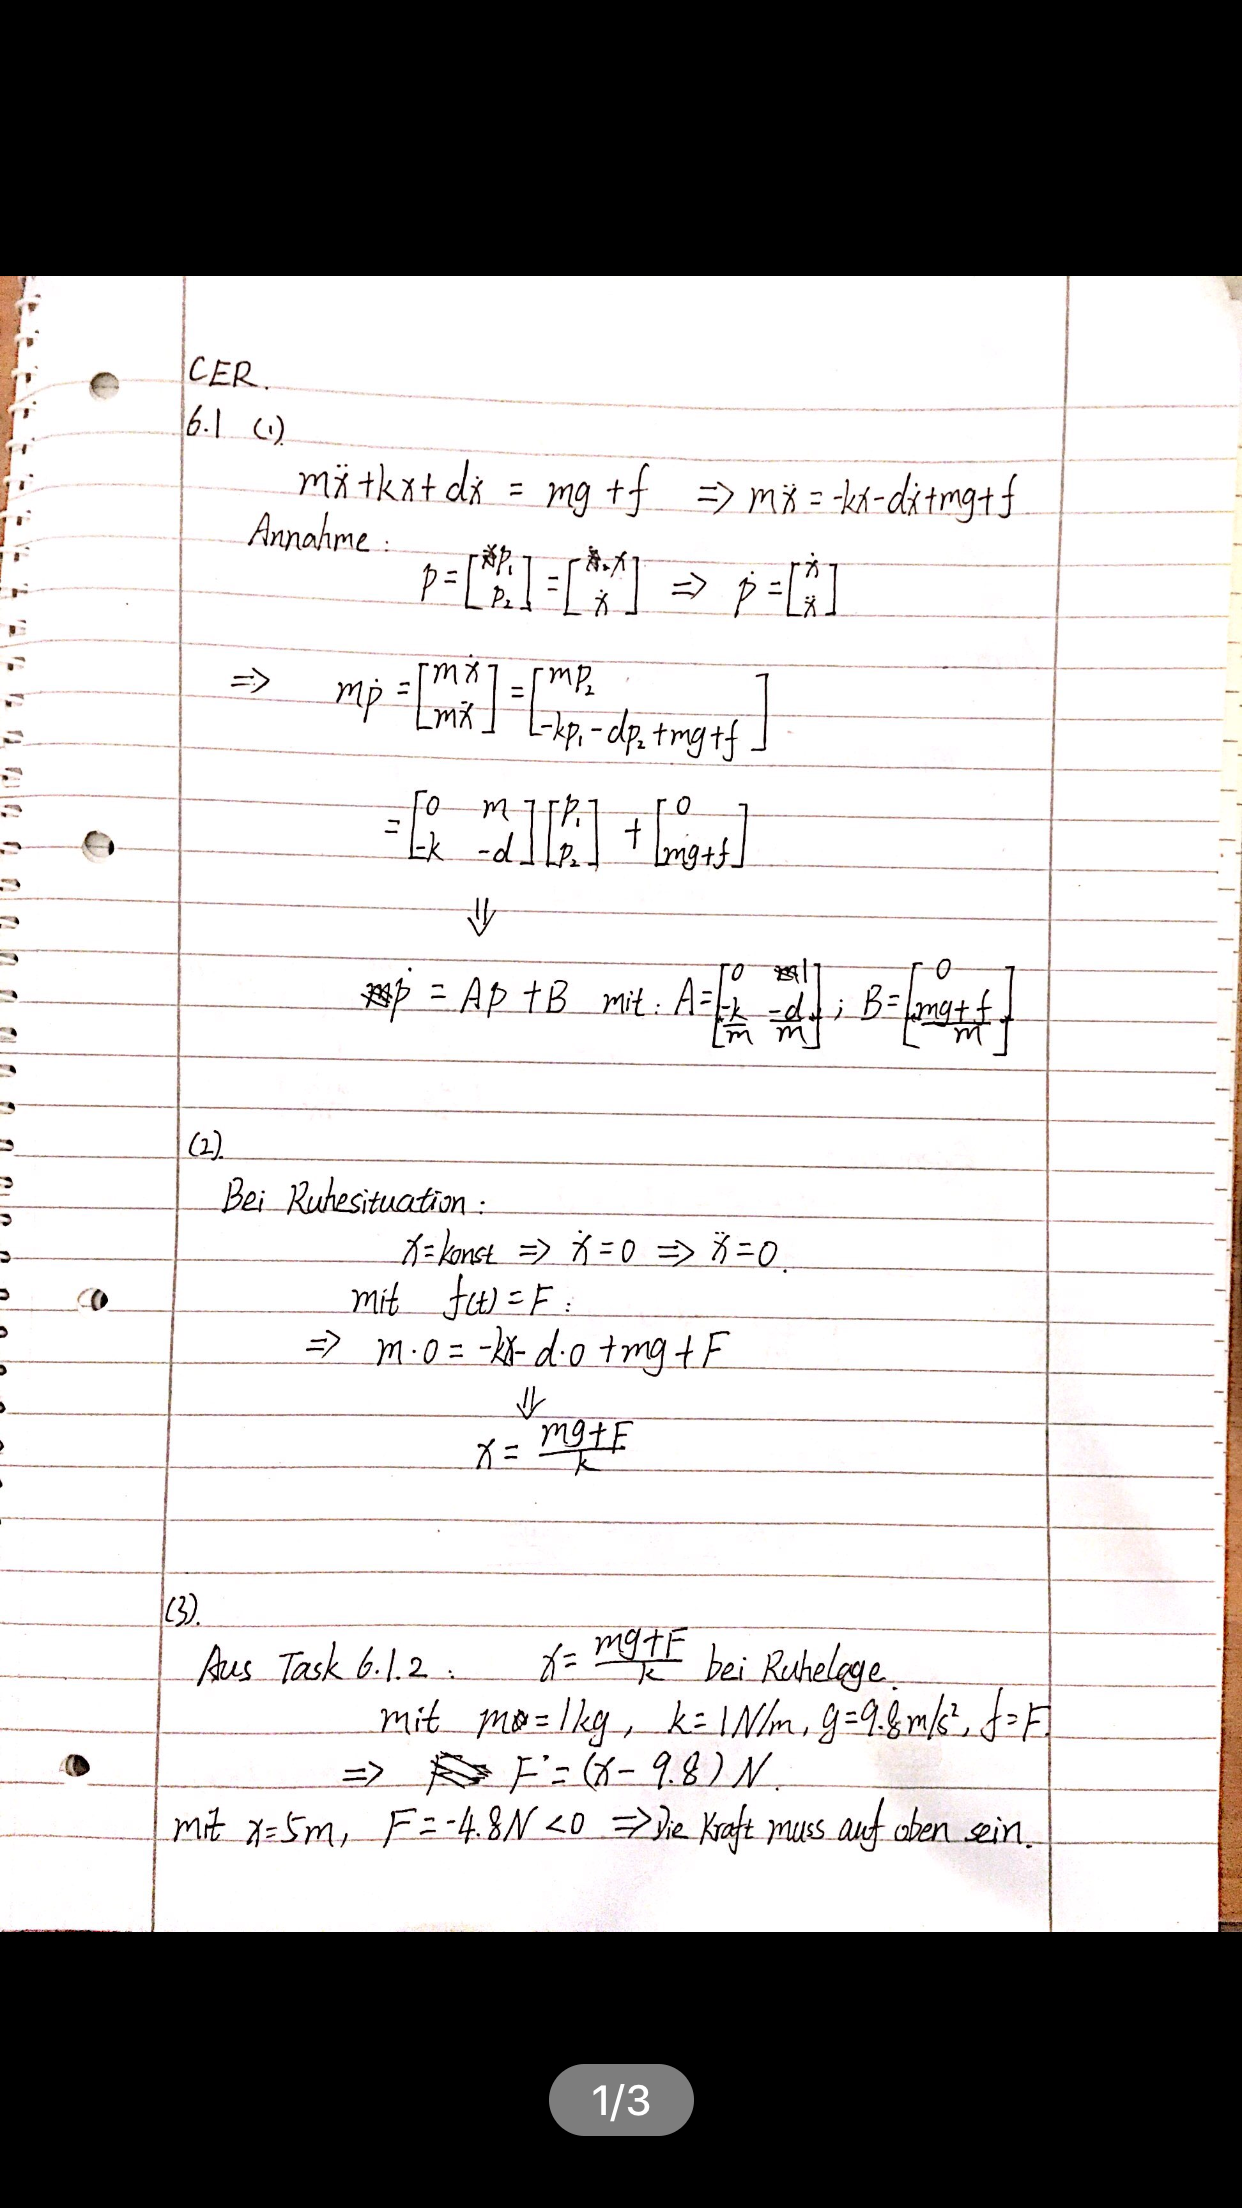 CER.
6.1 (1)
mẍ + kx + dẋ = mg + f ⇒ mẍ = -kx - dẋ + mg + f
Annahme:
p = [p₁; p₂] = [x; ẋ] ⇒ ṗ = [ẋ; ẍ]
⇒ mṗ = [mẋ; mẍ] = [mp₂; -kp₁ - dp₂ + mg + f]
= [0 m; -k -d] [p₁; p₂] + [0; mg+f]
⇓
ṗ = Ap + B mit: A = [0 1; -k/m -d/m]; B = [0; (mg+f)/m]
(2).
Bei Ruhesituation:
x = konst ⇒ ẋ = 0 ⇒ ẍ = 0.
mit f(t) = F:
⇒ m·0 = -kx - d·0 + mg + F
⇓
x = (mg+F)/k
(3).
Aus Task 6.1.2: x = (mg+F)/k bei Ruhelage.
mit m = 1kg, k = 1N/m, g = 9.8m/s², f = F.
⇒ F = (x - 9.8) N.
mit x = 5m, F = -4.8N < 0 ⇒ Die Kraft muss auf oben sein.
1/3